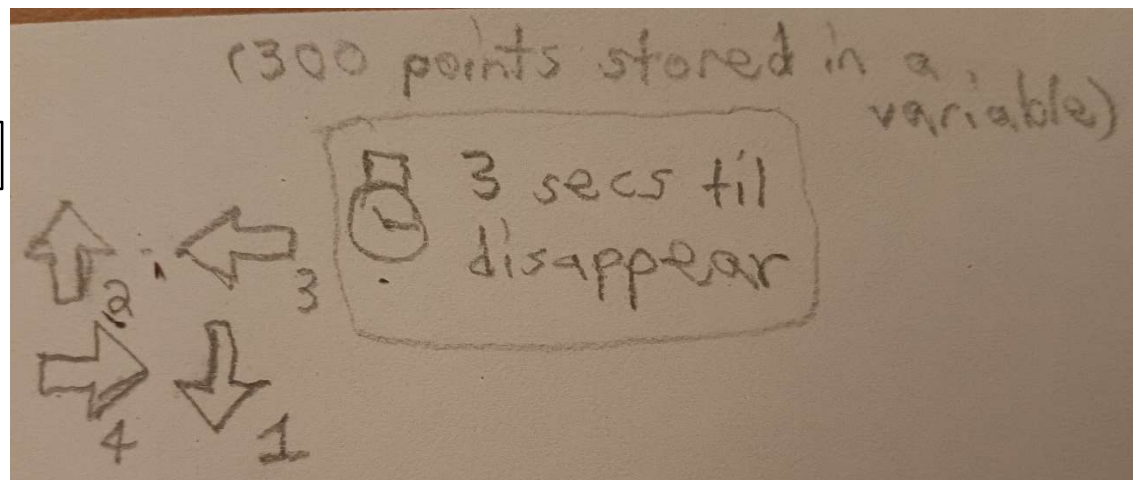 (300 points stored in a
variable)
3 secs til
disappear
2
3
4
1